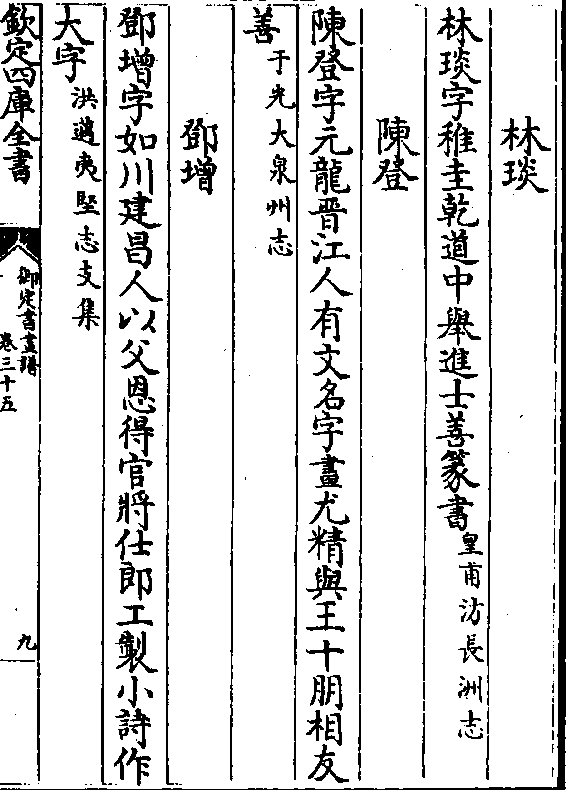 林琰
林琰字稚圭乾道中舉進士善篆書皇甫汸長洲志
陳登
陳登字元龍晉江人有文名字畫尤精與王十朋相友
善于光大泉州志
鄧增
鄧增字如川建昌人以父恩得官將仕郎工製小詩作
大字洪邁夷堅志支集
欽定四庫全書
御定書畫譜
卷三十五
九